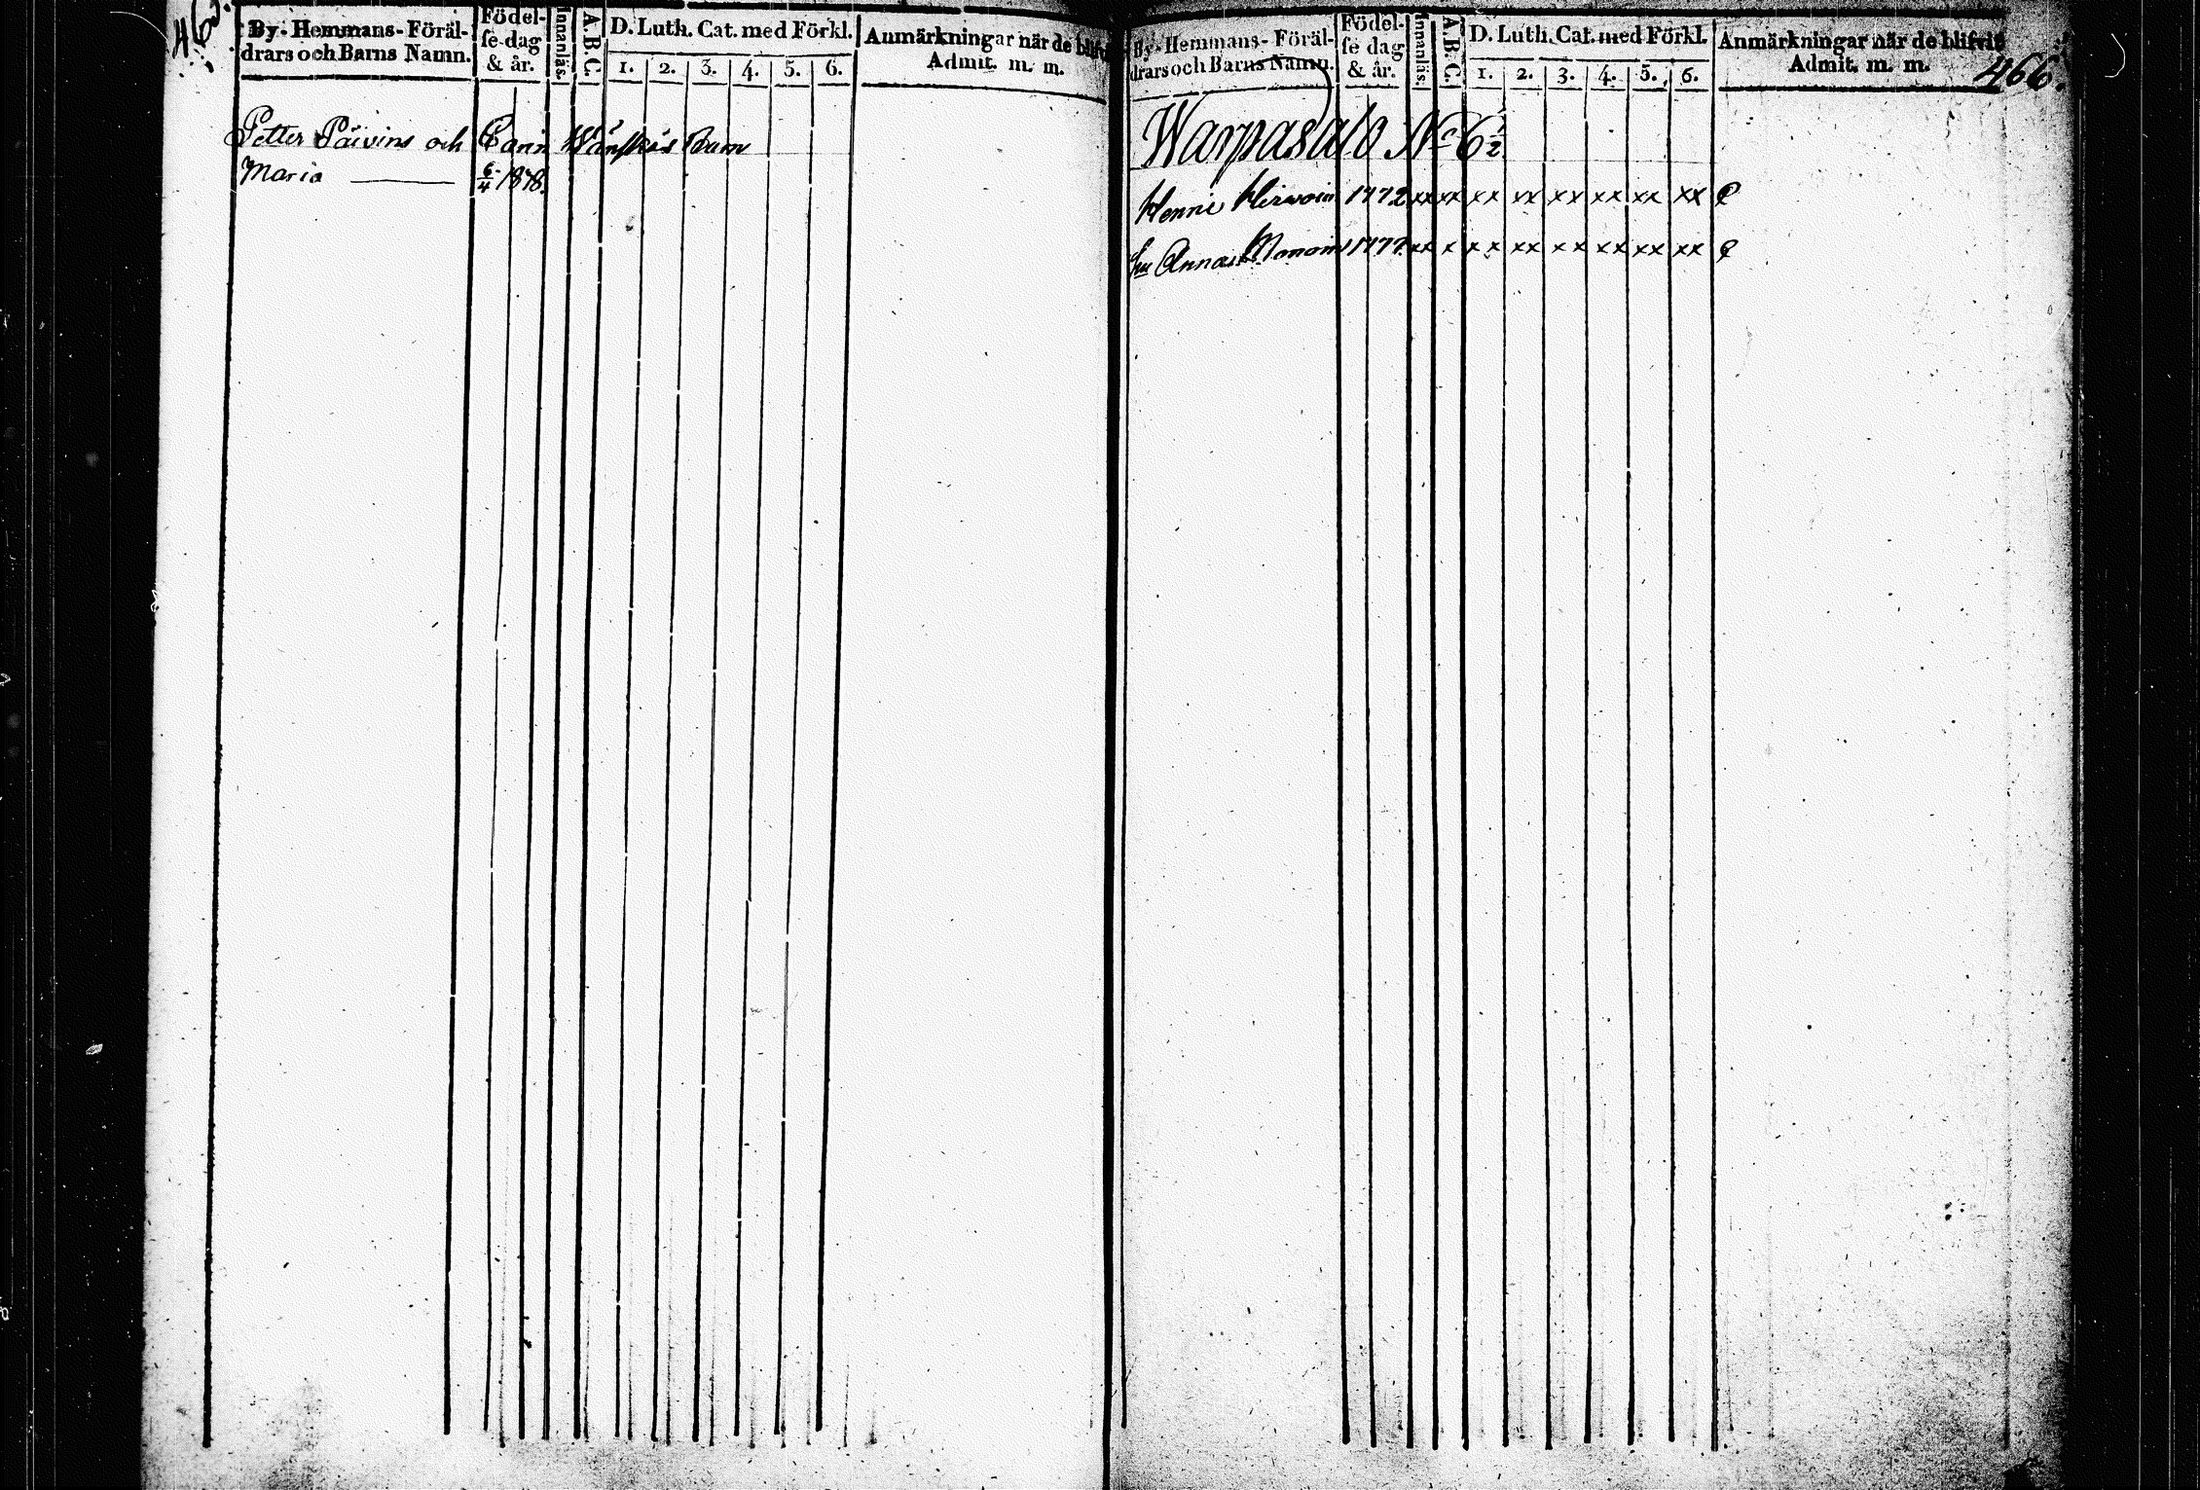 465.
By- Hemmans- Föräl-
drars och Barns Namn.
Födel-
se dag
& år.
Innanläs.
A. B. C.
D. Luth. Cat. med Förkl.
1. 2. 3. 4. 5. 6.
Anmärkningar när de blifvit
Admit. m. m.
Petter Päivins och Carin Barn
Maria 6/4 18
By- Hemmans- Föräl-
drars och Barns Namn.
Födel-
se dag
& år.
Innanläs.
A. B. C.
D. Luth. Cat. med Förkl.
1. 2. 3. 4. 5. 6.
Anmärkningar när de blifvit
Admit. m. m.
466.
Warpasalo No 6 1/2
Henric Hirvoin 1772 xx xx xx xx xx xx xx xx
Anna 177 xx x xx xx xx xx xx xx